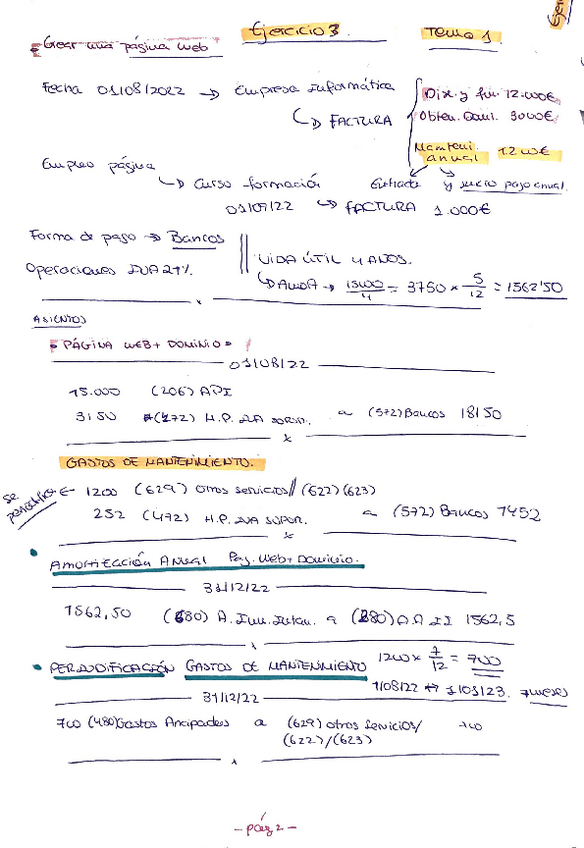 Ejercicio 3. Tema 1.
Crear una página web
Fecha 01/08/2022 → Empresa Informática
Dis. y fun. 12.000€
↳ FACTURA
Obten. Domi. 3000€
Manteni. anual 1200€
Empleo página
↳ Curso formación
y único pago anual.
01/09/22 ↳ FACTURA 1.000€
Forma de pago → Bancos
VIDA ÚTIL 4 AÑOS.
Operaciones IVA 21%.
↳ → 15000/4 = 3750 × 5/12 = 1562'50
ASIENTOS
• PÁGINA WEB + DOMINIO •
01/08/22
15.000 (206) API
3150 (472) H.P. IVA SOPOR. a (572) Bancos 18150
GASTOS DE MANTENIMIENTO.
se ← 1200 (629) Otros servicios// (622) (623)
252 (472) H.P. IVA SUPOR. a (572) Bancos 1452
• AMORTIZACIÓN ANUAL Pag. Web + Dominio.
31/12/22
1562,50 (680) A. Inm. Intan. a (280) A.A II 1562,5
• PERIODIFICACIÓN GASTOS DE MANTENIMIENTO 1200 × 7/12 = 700
1/08/22 ↔ 1/08/23. 7 meses
31/12/22
700 (480) Gastos Anticipados a (629) otros servicios/ 700
(622)/(623)
- pág 2 -